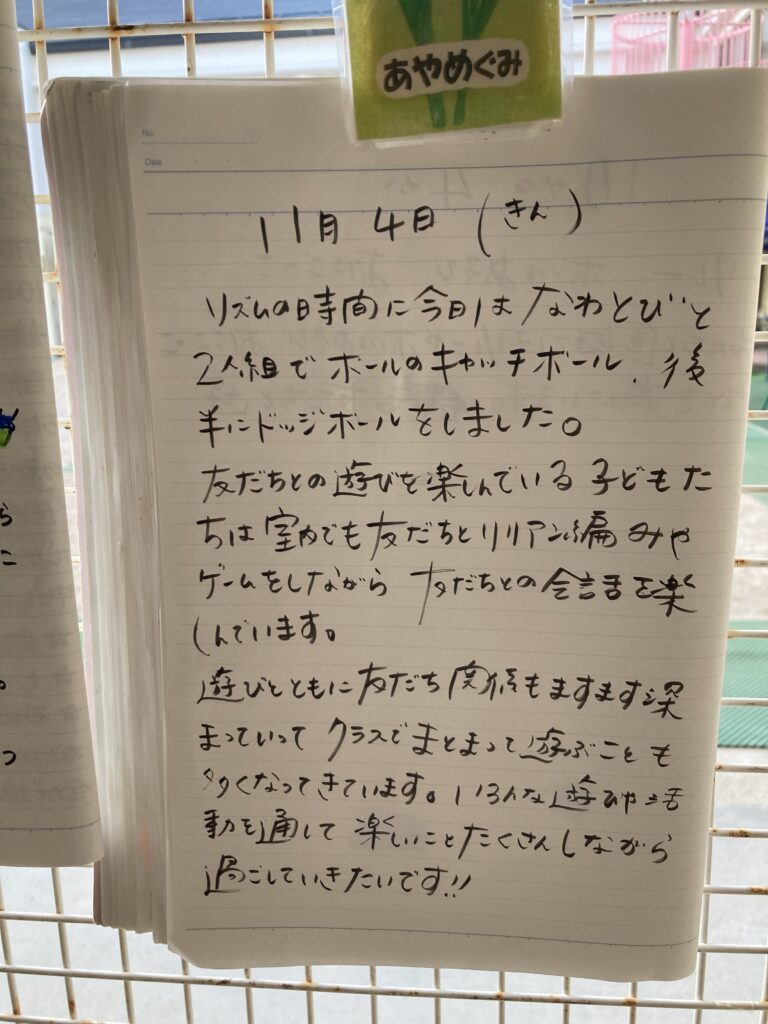 あやめぐみ
No.
Date
11月4日(きん)
リズムの時間に今日は なわとびと
2人組で ボールのキャッチボール、後
半にドッジボールをしました。
友だちとの遊びを楽しんでいる子どもた
ちは室内でも友だちとリリアン編みや
ゲームをしながら 友だちとの会話を楽
しんでいます。
遊びとともに友だち関係もますます深
まっていって クラスでまとまって遊ぶことも
多くなってきています。いろんな遊びや活
動を通して 楽しいことたくさんしながら
過ごしていきたいです!!